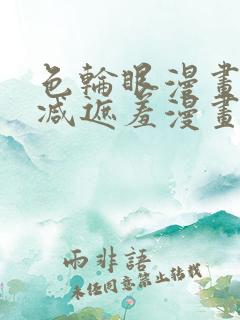 色輪眼漫畫
減遮羞漫畫
雨非語
未經同意禁止轉載